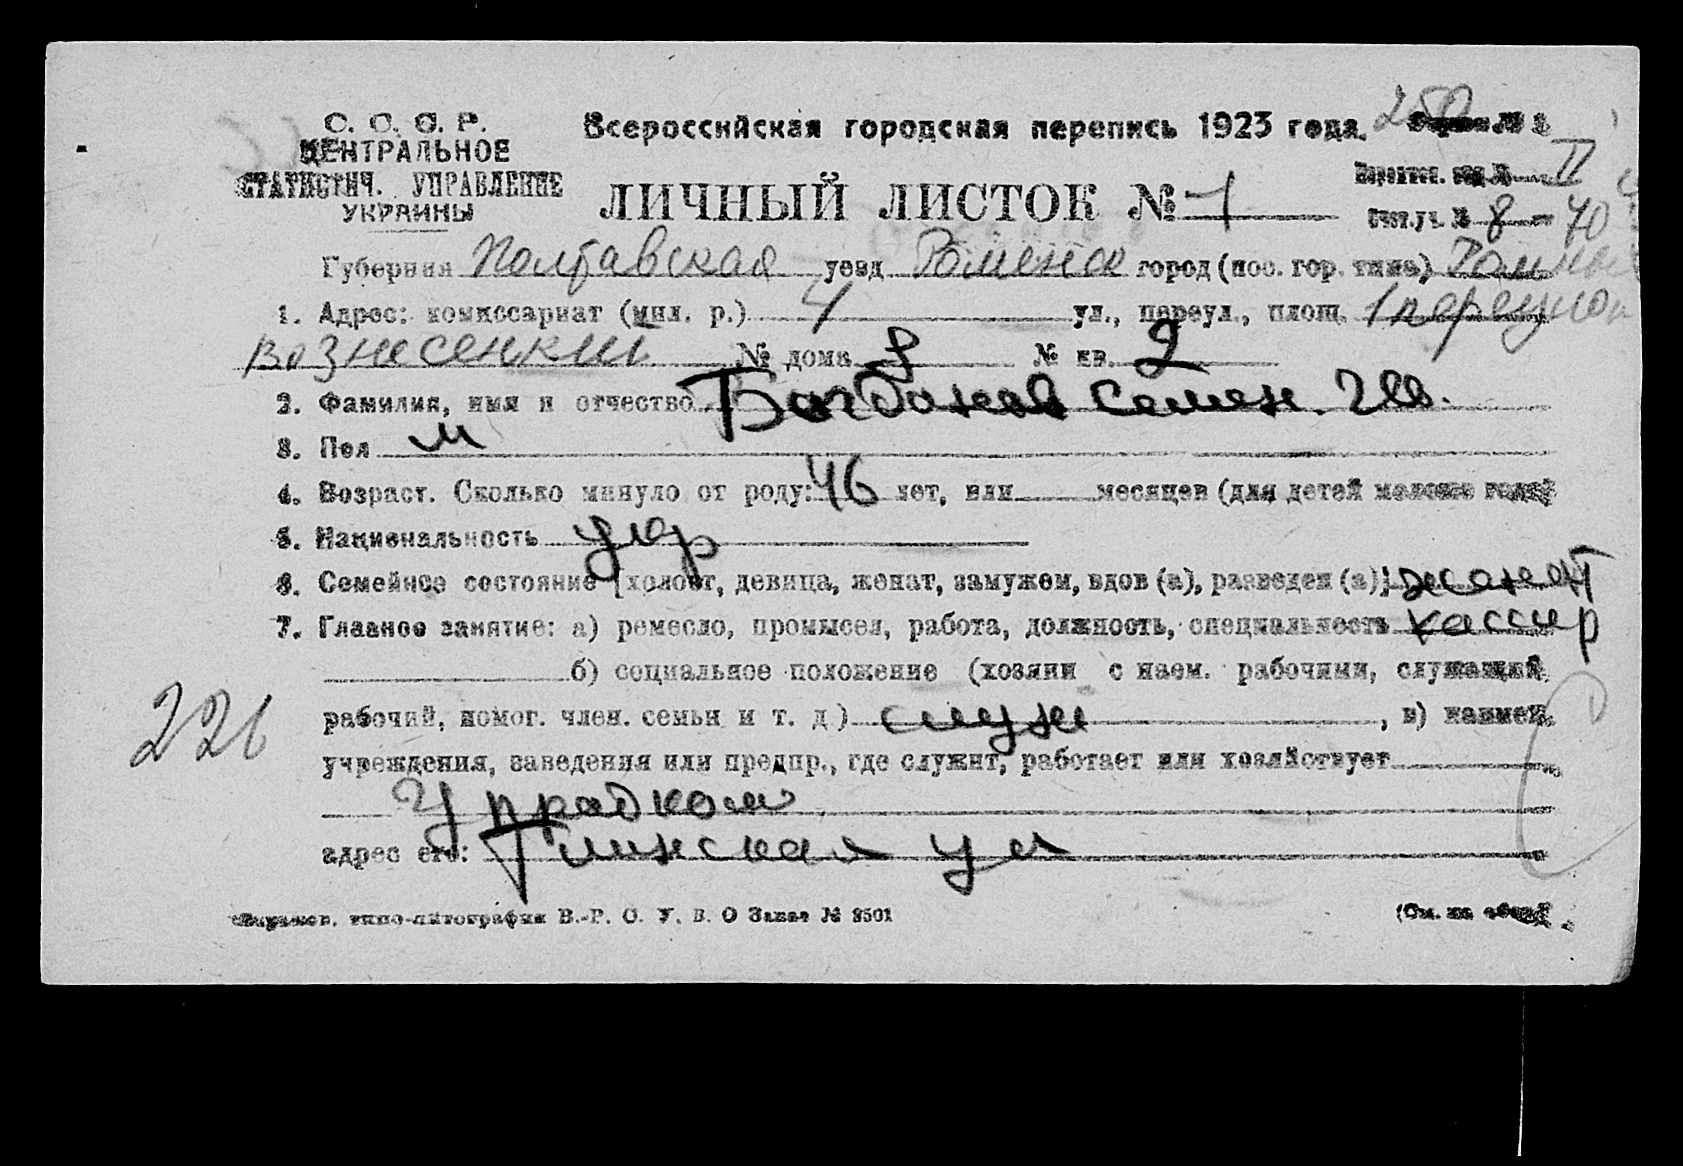 250
С. С. С. Р.
ЦЕНТРАЛЬНОЕ
СТАТИСТИЧ. УПРАВЛЕНИЕ
УКРАИНЫ
Всероссийская городская перепись 1923 года.
II
ЛИЧНЫЙ ЛИСТОК № 1
Счетн. уч. № 8 40
Губерния Полтавская уезд Роменск город (пос. гор. типа) Ромны
1. Адрес: комиссариат (мил. р.) 4 ул., переул., площ. 1 переулок
Вознесенкий № дома 9 № кв. 2
2. Фамилия, имя и отчество Богданов Семен. Ив.
3. Пол м
4. Возраст. Сколько минуло от роду: 46 лет, или месяцев (для детей моложе года)
5. Национальность укр
6. Семейное состояние [холост, девица, женат, замужем, вдов (а), разведен (а)] женат
7. Главное занятие: а) ремесло, промысел, работа, должность, специальность кассир
б) социальное положение (хозяин с наем. рабочими, служащий,
рабочий, помог. член. семьи и т. д) служ , в) наимен.
226
учреждения, заведения или предпр., где служит, работает или хозяйствует
адрес его: ул
типо-литография В.-Р. О. У. В. О Заказ № 8501
(См. на обор.)